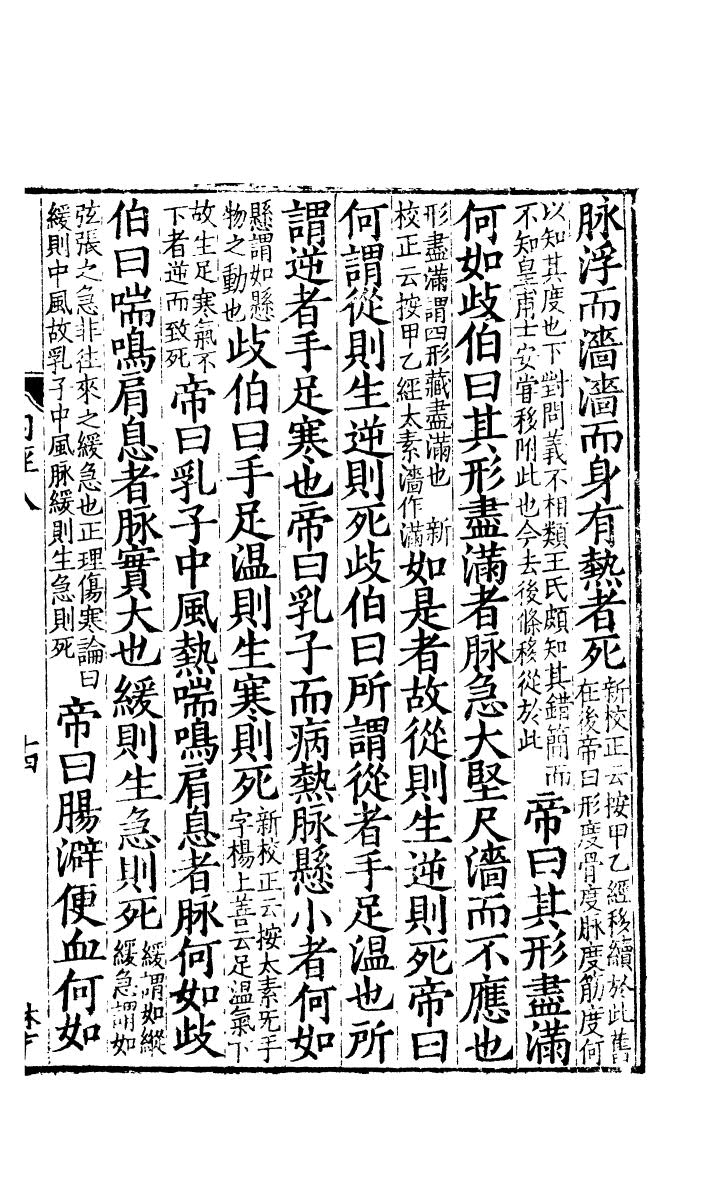 脉浮而濇濇而身有熱者死新校正云按甲乙經移續於此舊在後帝曰形度骨度脉度筋度何
以知其度也下對問義不相類王氏頗知其錯簡而不知皇甫士安甞移附此也今去後條移從於此帝曰其形盡滿
何如歧伯曰其形盡滿者脉急大堅尺濇而不應也
形盡滿謂四形藏盡滿也　新校正云按甲乙經太素濇作滿如是者故從則生逆則死帝曰
何謂從則生逆則死歧伯曰所謂從者手足温也所
謂逆者手足寒也帝曰乳子而病熱脉懸小者何如
懸謂如懸物之動也歧伯曰手足温則生寒則死新校正云按太素旡手字楊上善云足温氣下
故生足寒氣不下者逆而致死帝曰乳子中風熱喘鳴肩息者脉何如歧
伯曰喘鳴肩息者脉實大也緩則生急則死緩謂如縱緩急謂如
弦張之急非往來之緩急也正理傷寒論曰緩則中風故乳子中風脉緩則生急則死帝曰腸澼便血何如
十四